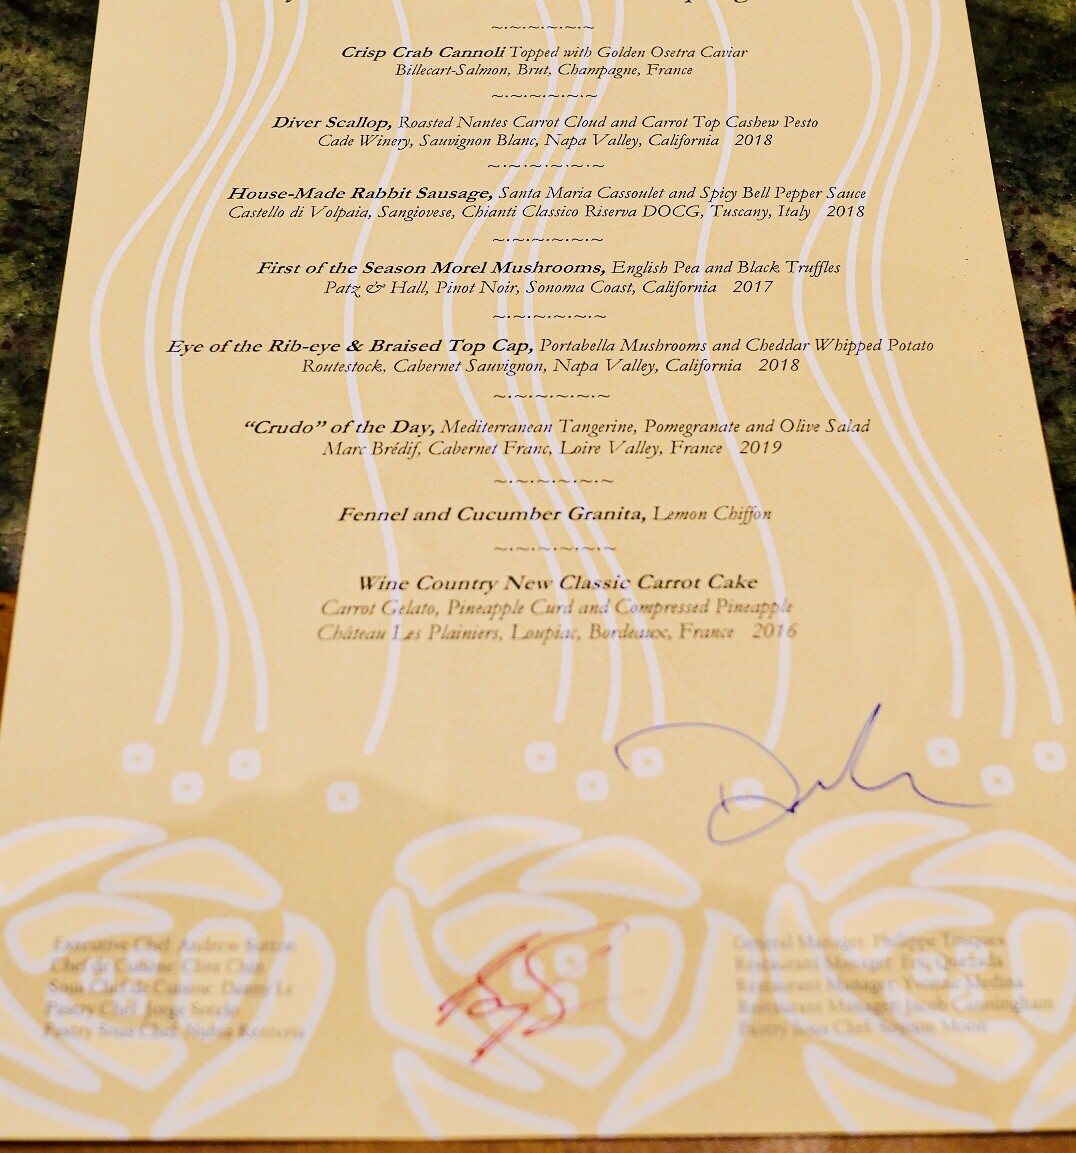 Crisp Crab Cannoli Topped with Golden Osetra Caviar
Billecart-Salmon, Brut, Champagne, France
Diver Scallop, Roasted Nantes Carrot Cloud and Carrot Top Cashew Pesto
Cade Winery, Sauvignon Blanc, Napa Valley, California 2018
House-Made Rabbit Sausage, Santa Maria Cassoulet and Spicy Bell Pepper Sauce
Castello di Volpaia, Sangiovese, Chianti Classico Riserva DOCG, Tuscany, Italy 2018
First of the Season Morel Mushrooms, English Pea and Black Truffles
Patz & Hall, Pinot Noir, Sonoma Coast, California 2017
Eye of the Rib-eye & Braised Top Cap, Portabella Mushrooms and Cheddar Whipped Potato
Routestock, Cabernet Sauvignon, Napa Valley, California 2018
“Crudo” of the Day, Mediterranean Tangerine, Pomegranate and Olive Salad
Marc Brédif, Cabernet Franc, Loire Valley, France 2019
Fennel and Cucumber Granita, Lemon Chiffon
Wine Country New Classic Carrot Cake
Carrot Gelato, Pineapple Curd and Compressed Pineapple
Château Les Plainiers, Loupiac, Bordeaux, France 2016
Executive Chef Andrew Sutton
Chef de Cuisine Clint Chin
Sous Chef de Cuisine Danny Le
Pastry Chef Jorge Sotelo
Pastry Sous Chef Nubia Renteria
General Manager Philippe Tosques
Restaurant Manager Eric Quezada
Restaurant Manager Yvonne Medina
Restaurant Manager Jacob Cunningham
Pastry Sous Chef Moon